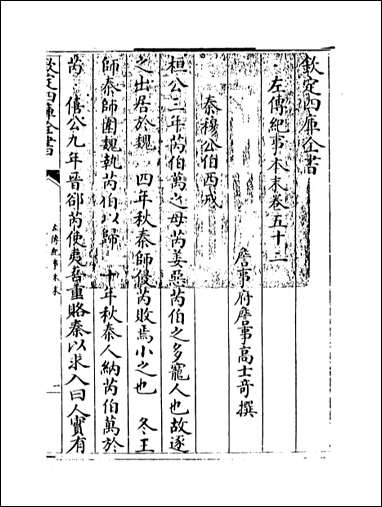 欽定四庫全書
左傳紀事本末卷五十二
詹事府詹事高士奇撰
秦穆公伯西戎
桓公三年芮伯萬之母芮姜惡芮伯之多寵人也故逐
之出居於魏 四年秋秦師侵芮敗焉小之也 冬王
師秦師圍魏執芮伯以歸 十年秋秦人納芮伯萬於
芮 僖公九年晉郤芮使夷吾重賂秦以求入曰人實有
欽定四庫全書
左傳紀事本末
一